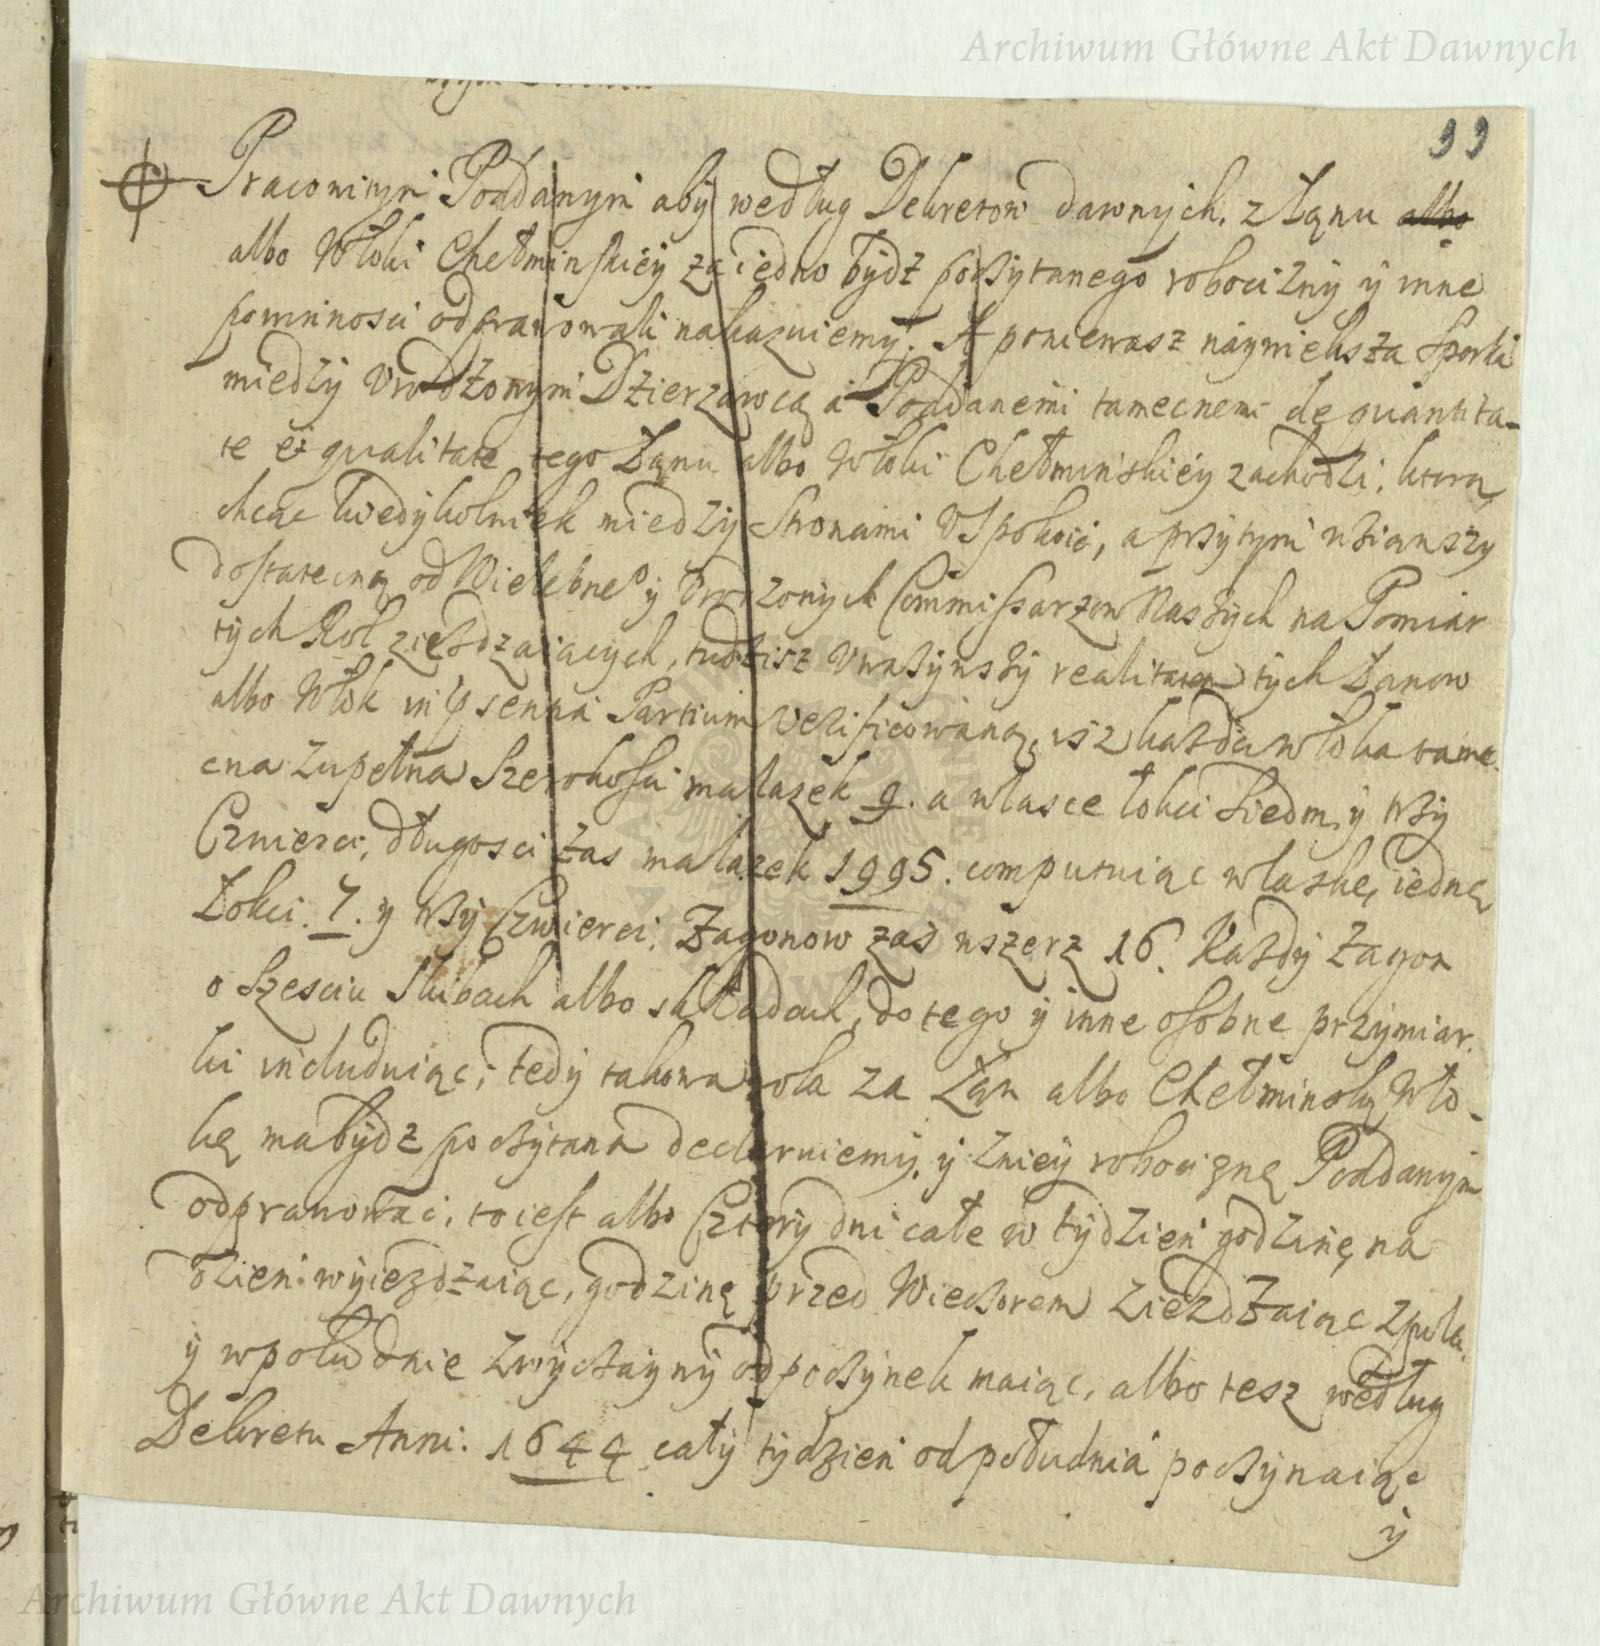 Archiwum Główne Akt Dawnych
99
Pracowitym Poddanym aby według Dekretow dawnych, z Łanu albo
albo Włoki Chełminskiey za iedno bydz poczytanego robocizny y inne
powinnosci odprawowali nakazuiemy. A poniewasz náywieksza sporki
miedzy Vrodzonym Dzierzawcą á Poddanemi tamecnemi de quantita-
te et qualitate tego Łanu albo Włoki Chełminskiey zachodzi, ktorą
chcąc kiedykolwiek miedzy Stronami Vspokoić, a przytym wziąwszy
dostatecną od Wielebne° y Vrodzonych Commissarzow Naszych na Pomiar
tych Rol ziezdzaiących, tudzisz Vwazywszy realitatem tych Łanow
albo Włok in psennä Partium Verificowaną, isz kazda włoka tame-
cna zupełna Szerokosci ma lazek 9. a w lasce łokci siedm y trzy
Czwierci, długosci zas ma lazek 1995. computuiąc w laskę iednę
Łokci. 7. y trzy Czwierci. Zagonow zaś wszerz 16. Kazdy zagon
o Szesciu Skibach albo składach, do tego y inne osobne przymiar-
ki includuiąc, tedy takowa rola za Łan albo Chełminską Wło-
kę ma bydz poczytana declaruiemy, y z niey robociznę Poddanym
odprawować, to iest albo Cztery dni całe w tydzień godzinę na
dzień wyiezdzaiąc, godzinę przed Wieczorem ziezdzaiąc z pola.
y w południe zwyczayny odpoczynek maiąc, albo tesz według
Dekretu Anni. 1644 cały tydzień od południá poczynaiąc
y
Archiwum Główne Akt Dawnych